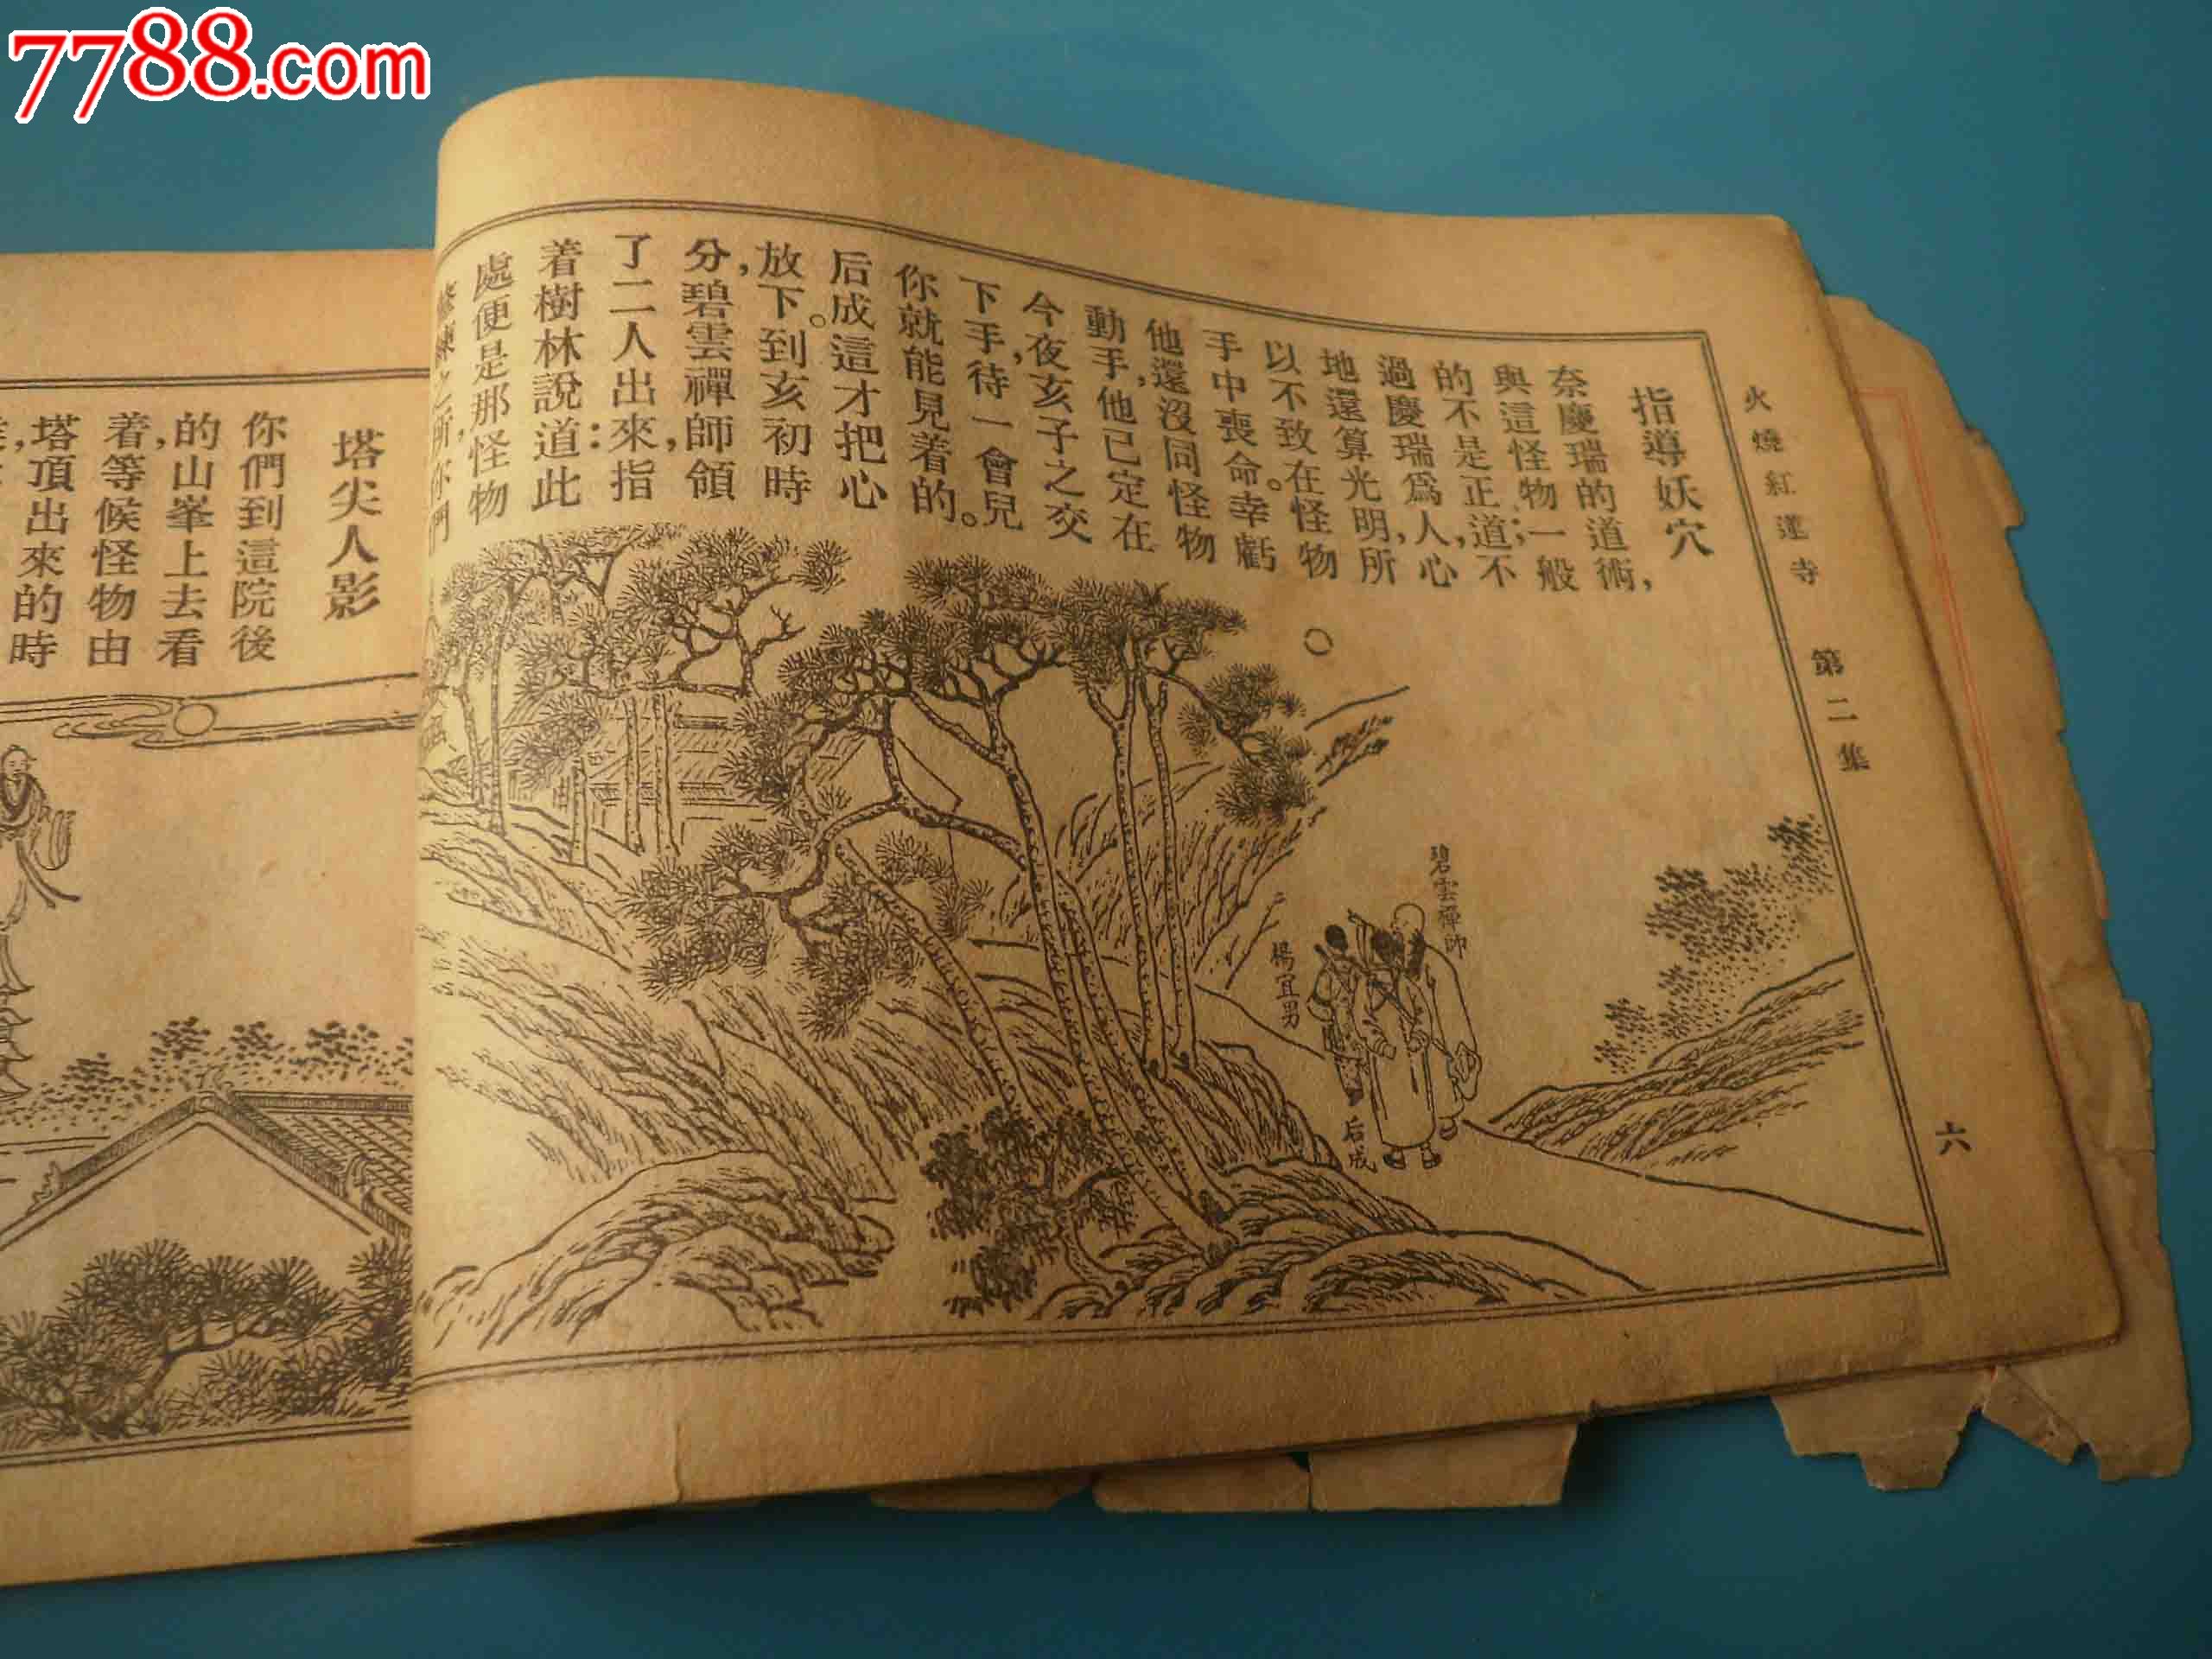 7788.com
火燒紅蓮寺 第二集
六
指導妖穴
奈慶瑞的道術,
與這怪物一般
的不是正道;不
過慶瑞爲人,心
地還算光明,所
以不致在怪物
手中喪命。幸虧
他還沒同怪物
動手,他已定在
今夜亥子之交
下手,待一會兒
你就能見着的。
后成這才把心
放下。到亥初時
分,碧雲禪師領
了二人出來,指
着樹林說道:此
處便是那怪物
修煉之所,你們
碧雲禪師
楊宜男
后成
塔尖人影
你們到這院後
的山峯上去看
着,等候怪物由
塔頂出來的時